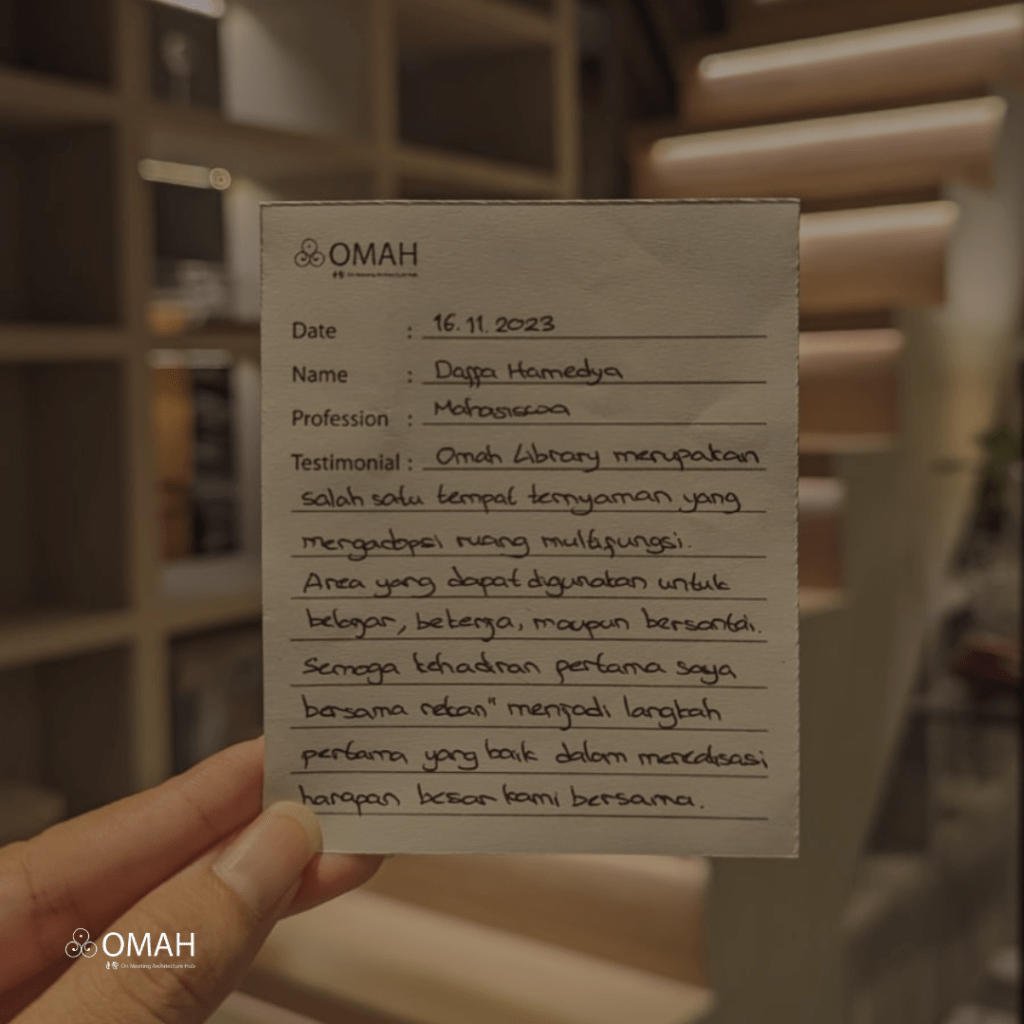 OMAH
On Meaning Architecture Hub
Date : 16.11.2023
Name : Daffa Hamedya
Profession : Mahasiswa
Testimonial : Omah Library merupakan
salah satu tempat ternyaman yang
mengadopsi ruang multifungsi.
Area yang dapat digunakan untuk
belajar, bekerja, maupun bersantai.
Semoga kehadiran pertama saya
bersama rekan" menjadi langkah
pertama yang baik dalam merealisasi
harapan besar kami bersama.
OMAH
On Meaning Architecture Hub